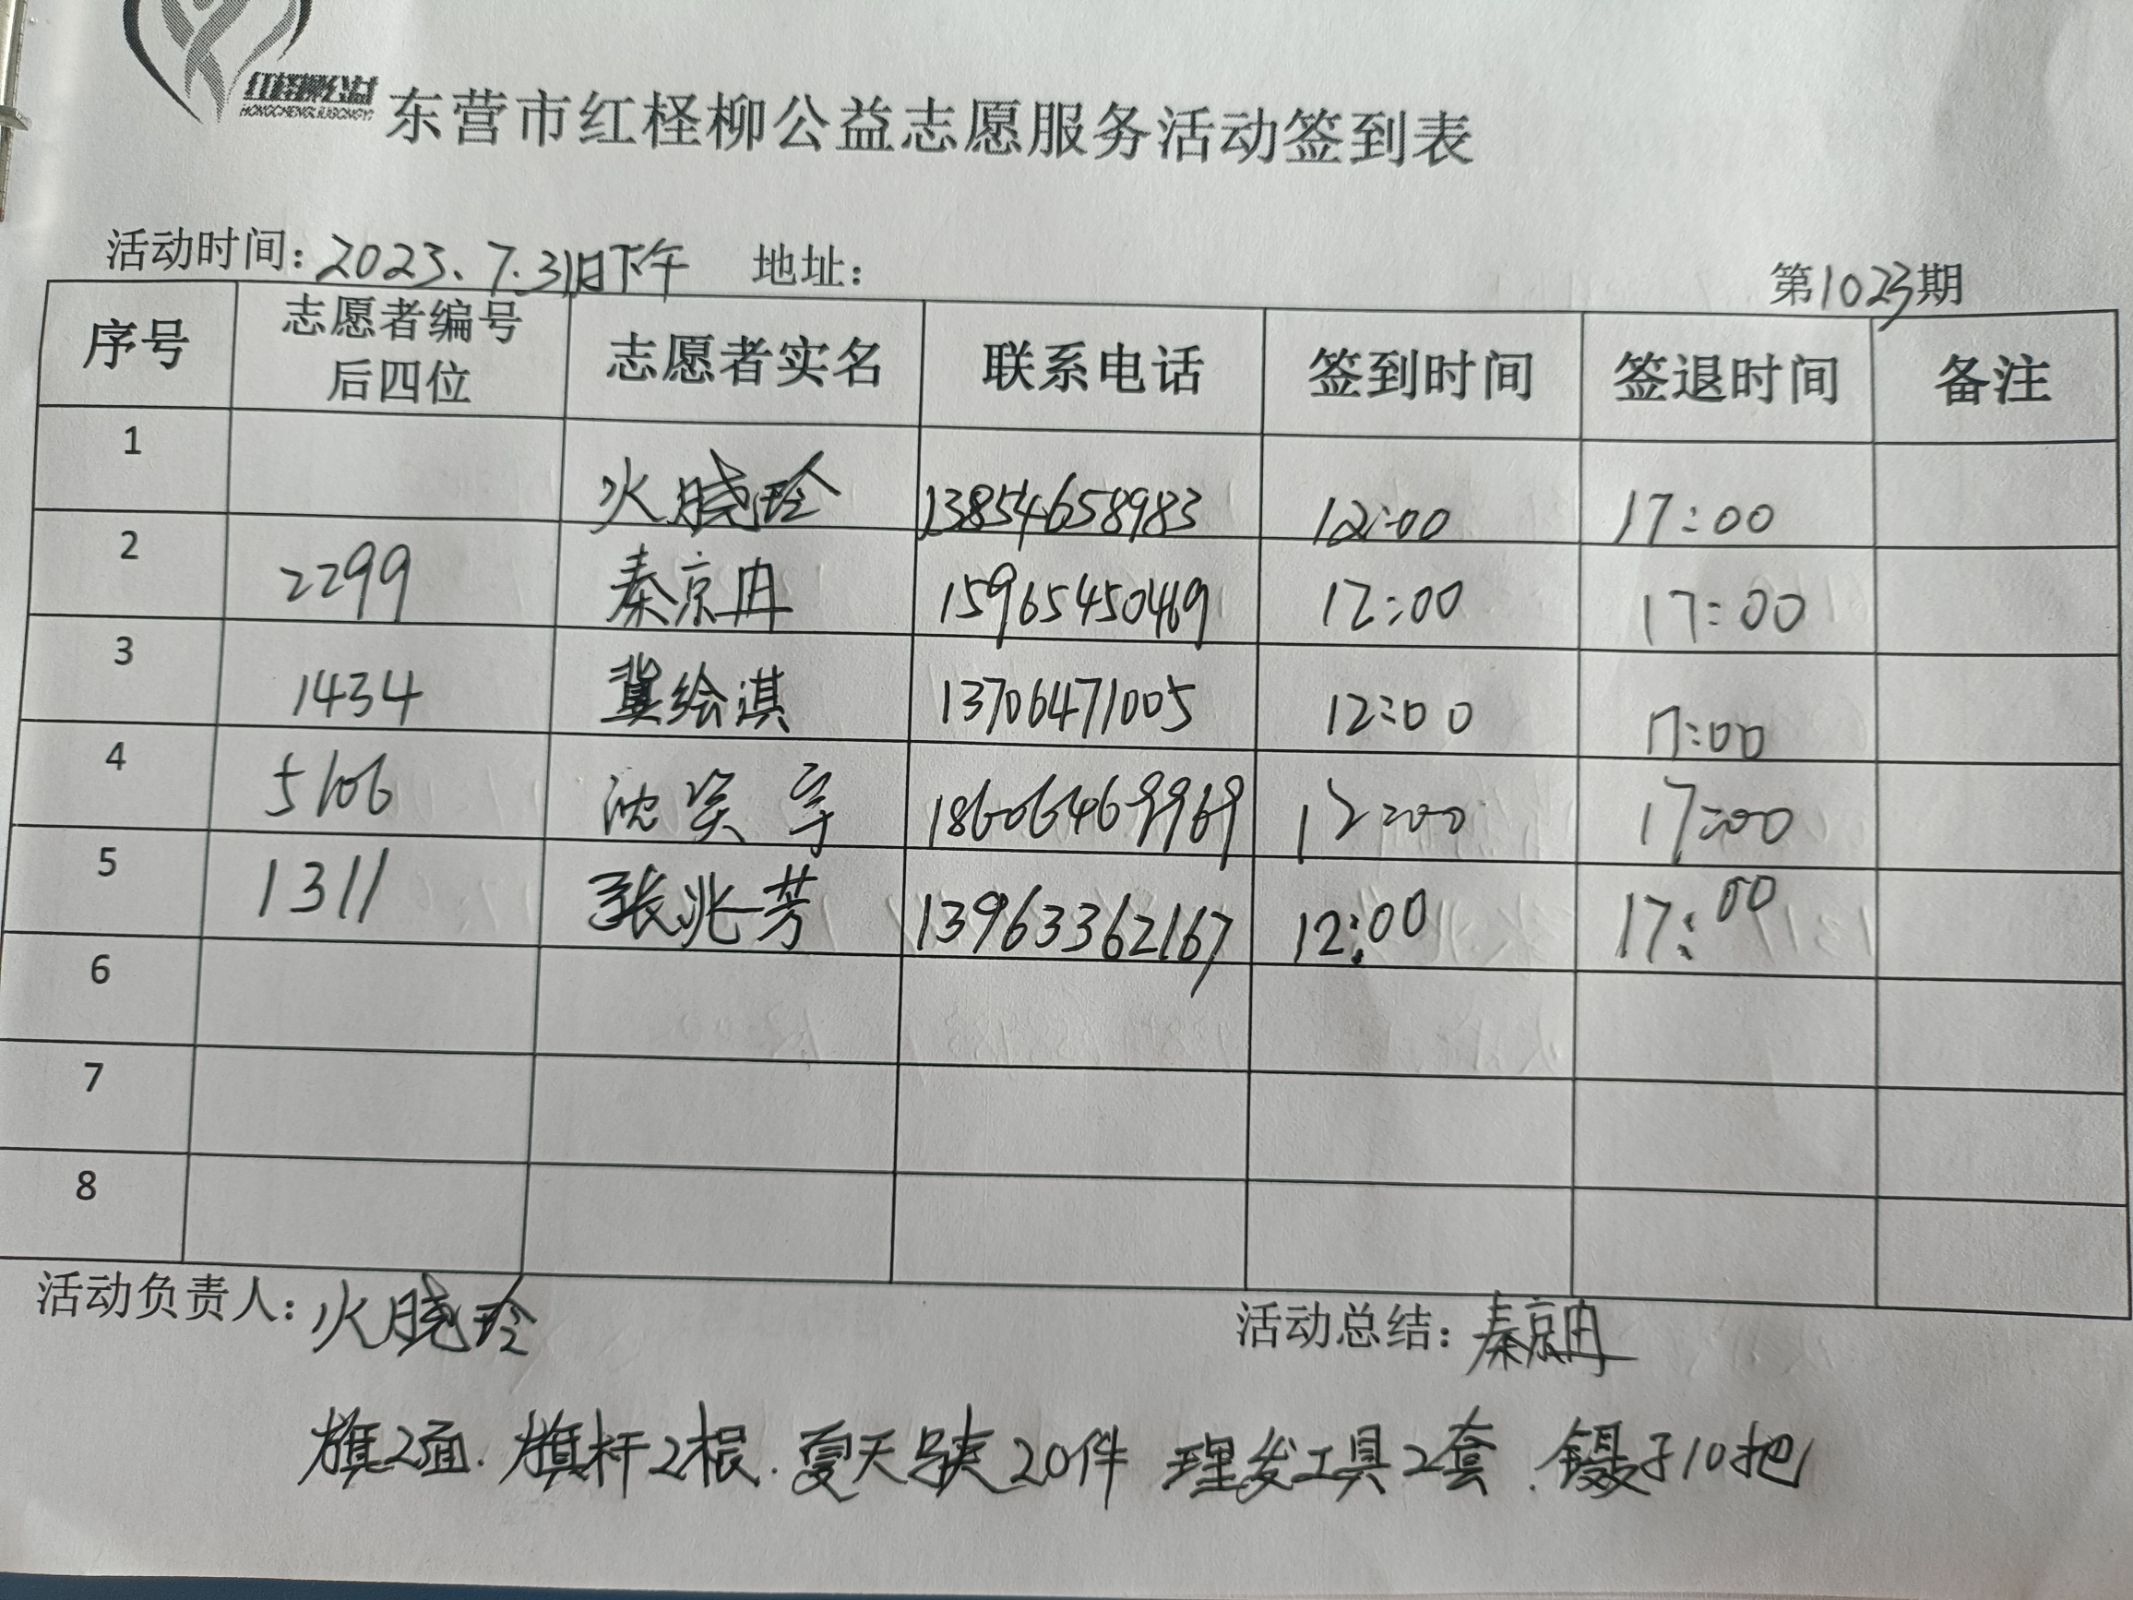 红柽柳公益
HONGCHENGLIUGONGYI
东营市红柽柳公益志愿服务活动签到表
活动时间：2023.7.31日下午 地址： 第1023期
序号 志愿者编号后四位 志愿者实名 联系电话 签到时间 签退时间 备注
1 火晓玲 13854658983 12:00 17:00
2 2299 秦京冉 15965450469 12:00 17:00
3 1434 冀绘淇 13706471005 12:00 17:00
4 5106 沈 宇 18606469969 12:00 17:00
5 1311 张兆芳 13963362167 12:00 17:00
6
7
8
活动负责人：火晓玲 活动总结：秦京冉
旗2面.旗杆2根.夏天马夹20件 理发工具2套.镊子10把